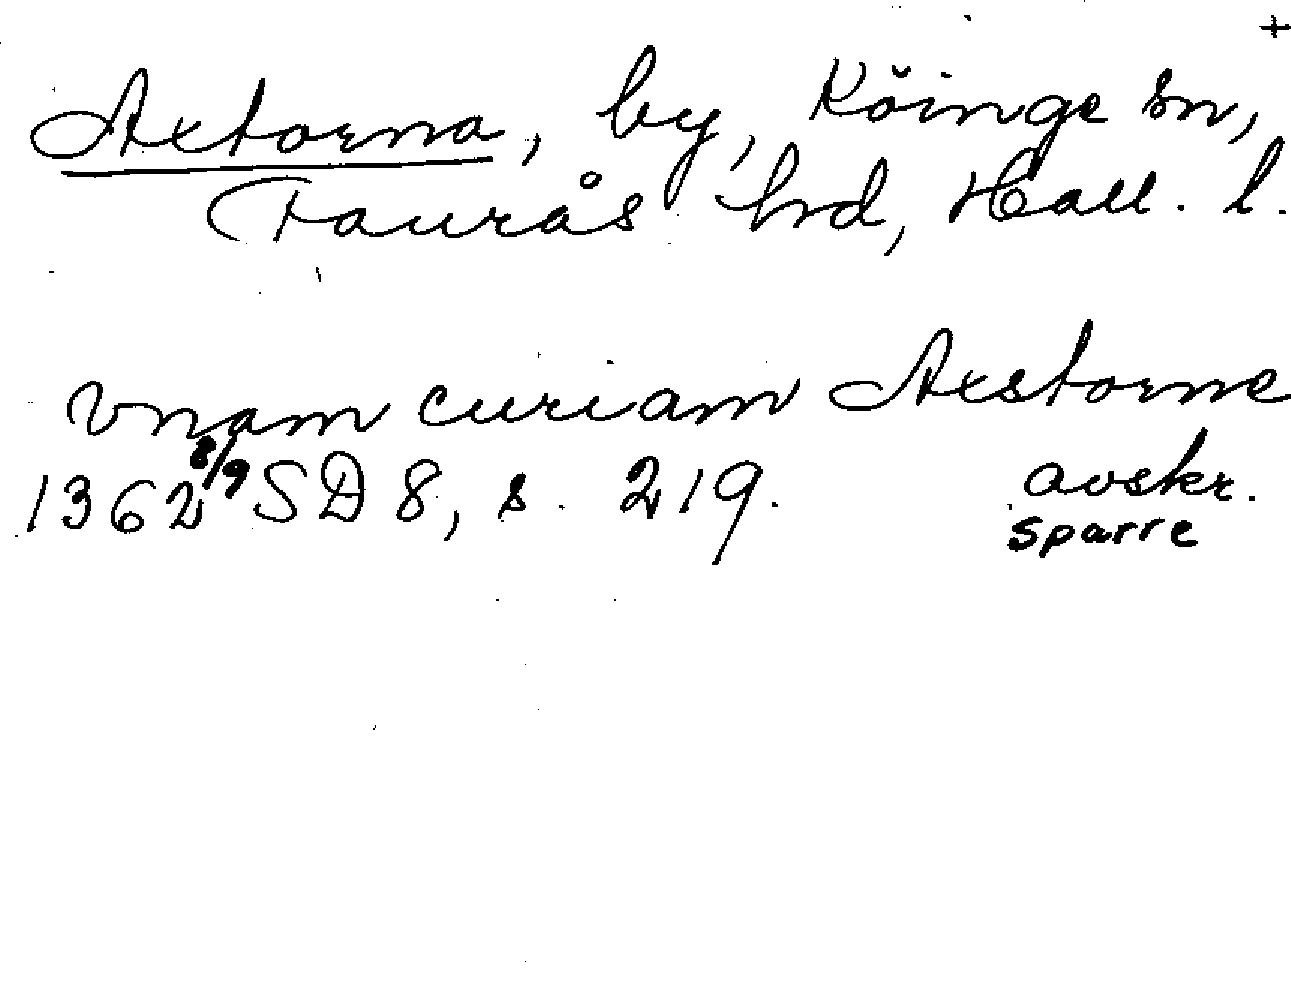 +
Axtorna, by, Köinge sn,
Faurås hrd, Hall. l.
vnam curiam Axstorne
1362 8/9 SD 8, s. 219. avskr.
sparre